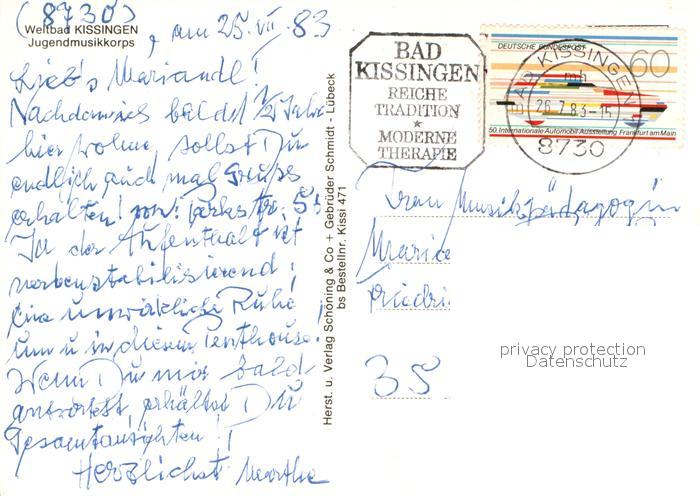 (8730)
Weltbad KISSINGEN
Jugendmusikkorps
, am 25. VII. 83
Lieb's Mariandl!
Nachdem ich bald 1/2 Jahr
hier wohne, sollst Du
endlich auch mal Gruss
erhalten!
Ja der Aufenthalt ist
nervenstabilisierend!
Eine unwirkliche Ruhe
um u in diesem Penthouse!
Wenn Du mir bald
antwortest, erhältst Du
Gesamtansichten!
Herzlichst Martha
Herst. u. Verlag Schöning & Co + Gebrüder Schmidt - Lübeck
bs Bestellnr. Kissi 471
BAD
KISSINGEN
REICHE
TRADITION
*
MODERNE
THERAPIE
BAD KISSINGEN
mh
26.7.83-15
8730
DEUTSCHE BUNDESPOST
60
50. Internationale Automobil-Ausstellung Frankfurt am Main
Frau Musikpädagogin
Maria
Friedri
privacy protection
Datenschutz
35